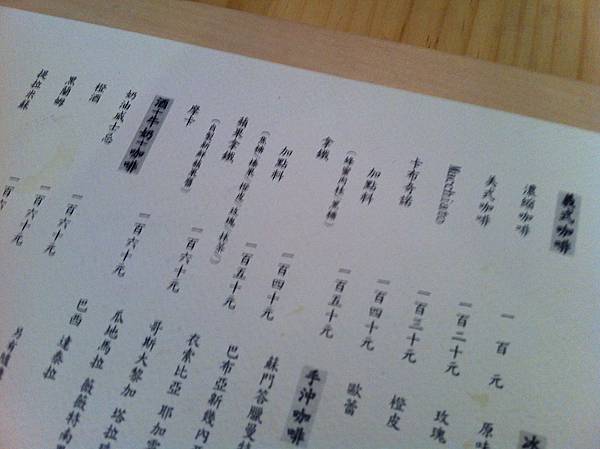 義式咖啡
濃縮咖啡 一百元
美式咖啡 一百二十元
Macchiato 一百三十元
卡布奇諾 一百四十元
加點料 一百五十元
(蜂蜜肉桂、黑糖)
拿鐵 一百四十元
加點料 一百五十元
蘋果拿鐵 一百六十元
摩卡 一百六十元
酒+牛奶+咖啡
奶油威士忌 一百六十元
橙酒 一百六十元
黑蘭姆 一百六
提拉米蘇
冰
原味
玫瑰
橙皮
歐蕾
手沖咖啡
蘇門答臘曼特
巴布亞新幾內
衣索比亞 耶加雪
哥斯大黎加 塔拉珠
瓜地馬拉 薇薇特南
巴西 達泰拉
另有